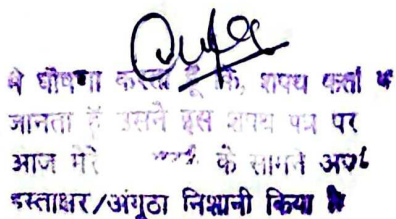 मे घोषणा करता हूँ कि, शपथ कर्ता
जानता हूँ उसने इस शपथ पत्र पर
आज मेरे के सामने अपने
हस्ताक्षर/अंगुठा निशानी किया है